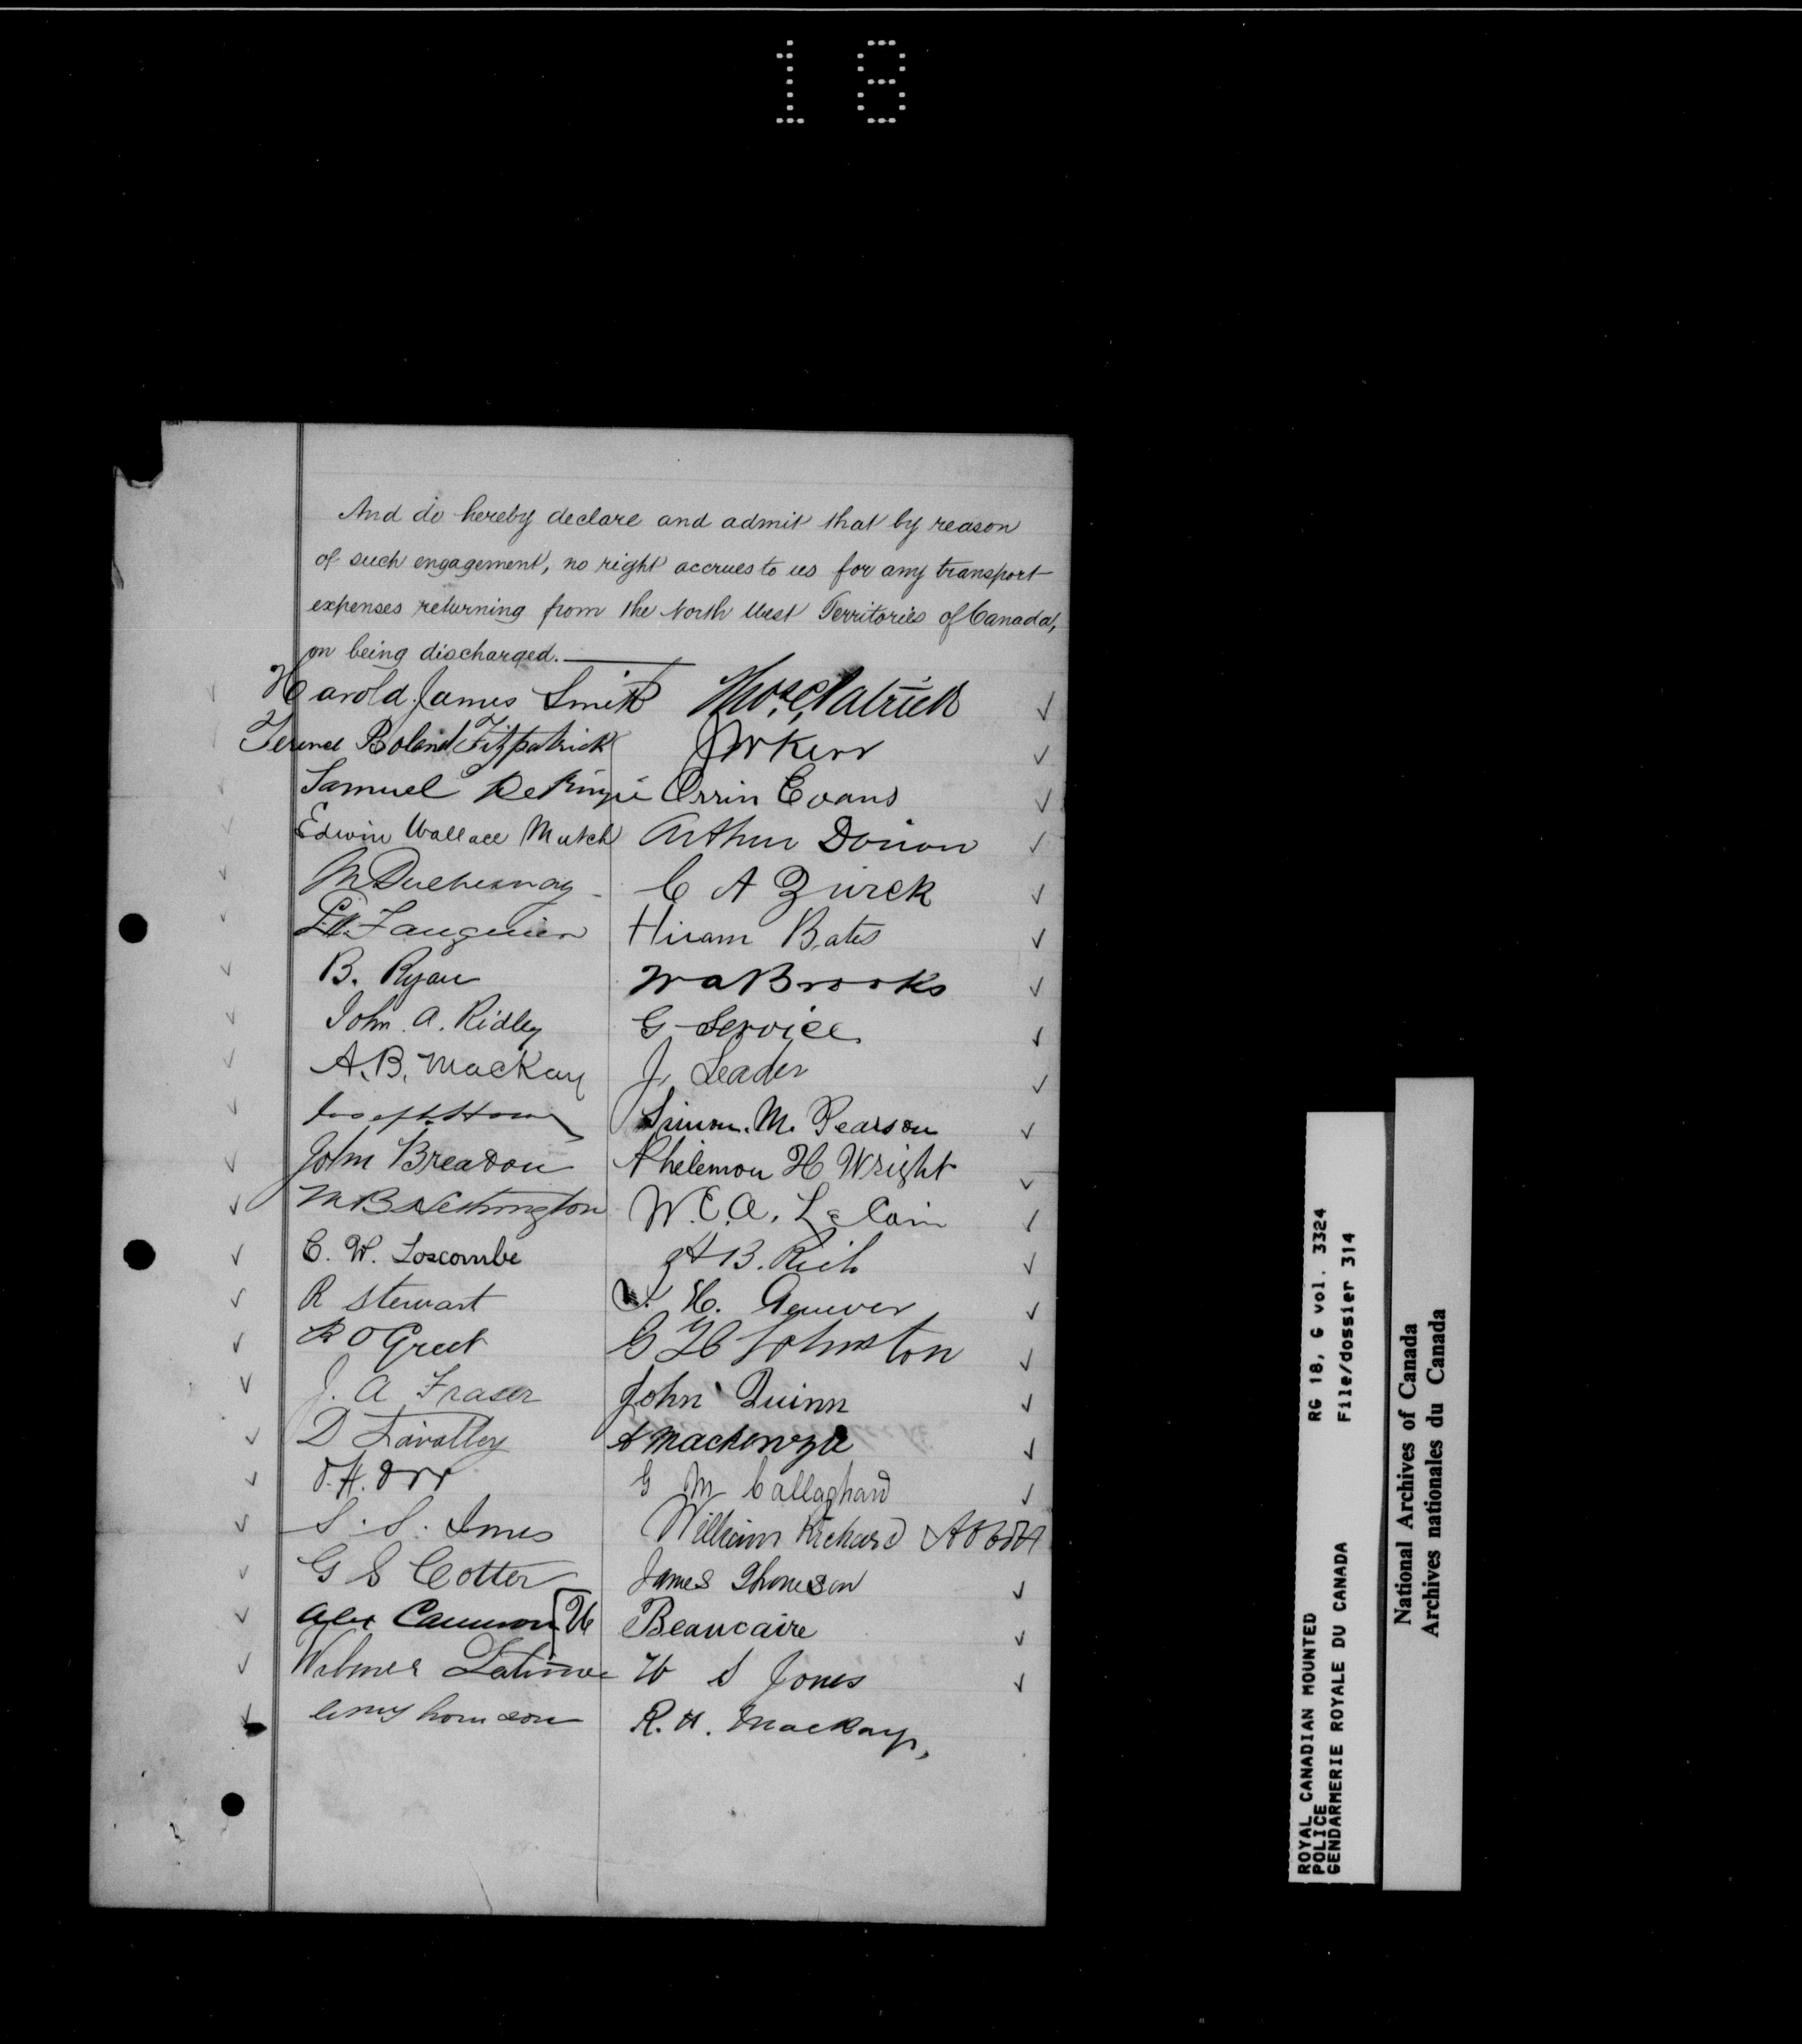 18
And do hereby declare and admit that by reason
of such engagement, no right accrues to us for any transport
expenses returning from the North West Territories of Canada,
on being discharged.
Harold James Smith
Terence Boland Fitzpatrick
Samuel
Edwin Wallace Mutch
M Duchesnay
B. Ryan
John A. Ridley
A. B. MacKay
Joseph
John Breadon
M B Nethrington
C. W. Loscombe
R Stewart
R O Greet
J. A Fraser
D Lavalley
O. H. Orr
S. S. Imes
G S Cotter
Alex Cameron
Wilmer Latimer
Thos. C. Patrick
J W Kerr
Orrin Evans
Arthur Dorion
C A Zurek
Hiram Bates
W A Brooks
G Service
J. Leader
Simon. M. Pearson
Philemon H Wright
W. C. A. Le Cain
H B. Rich
H.
G H Johnston
John Quinn
A Mackenzie
G M Callaghan
William Richard Abbott
James Thomson
Beaucaire
W S Jones
R. H. Mackay,
ROYAL CANADIAN MOUNTED
POLICE
GENDARMERIE ROYALE DU CANADA
RG 18, G vol. 3324
File/dossier 314
National Archives of Canada
Archives nationales du Canada